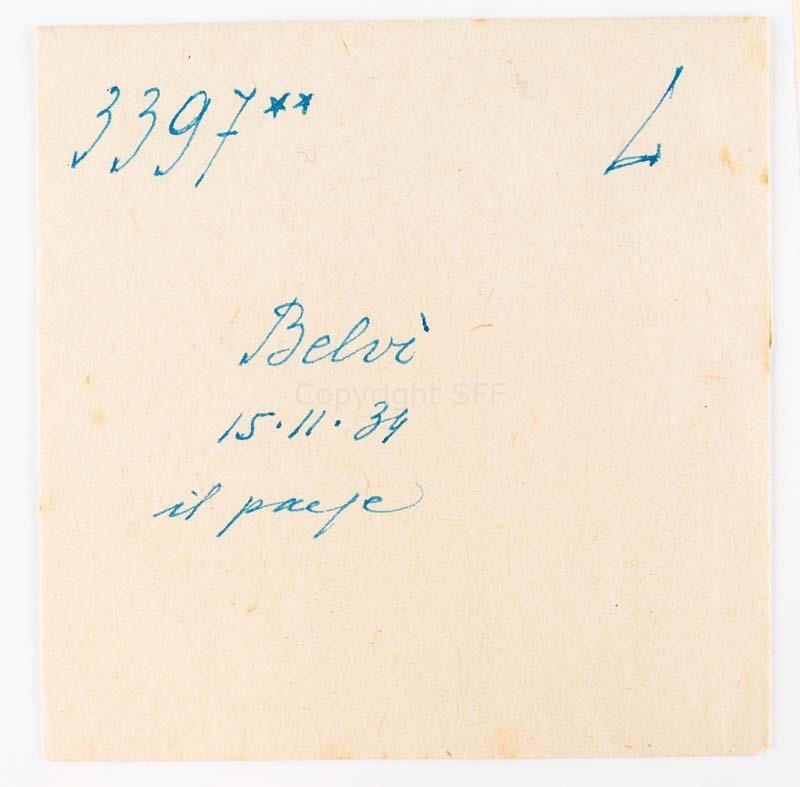 3397** L
Belvì
Copyright SFF
15.11.34
il paese